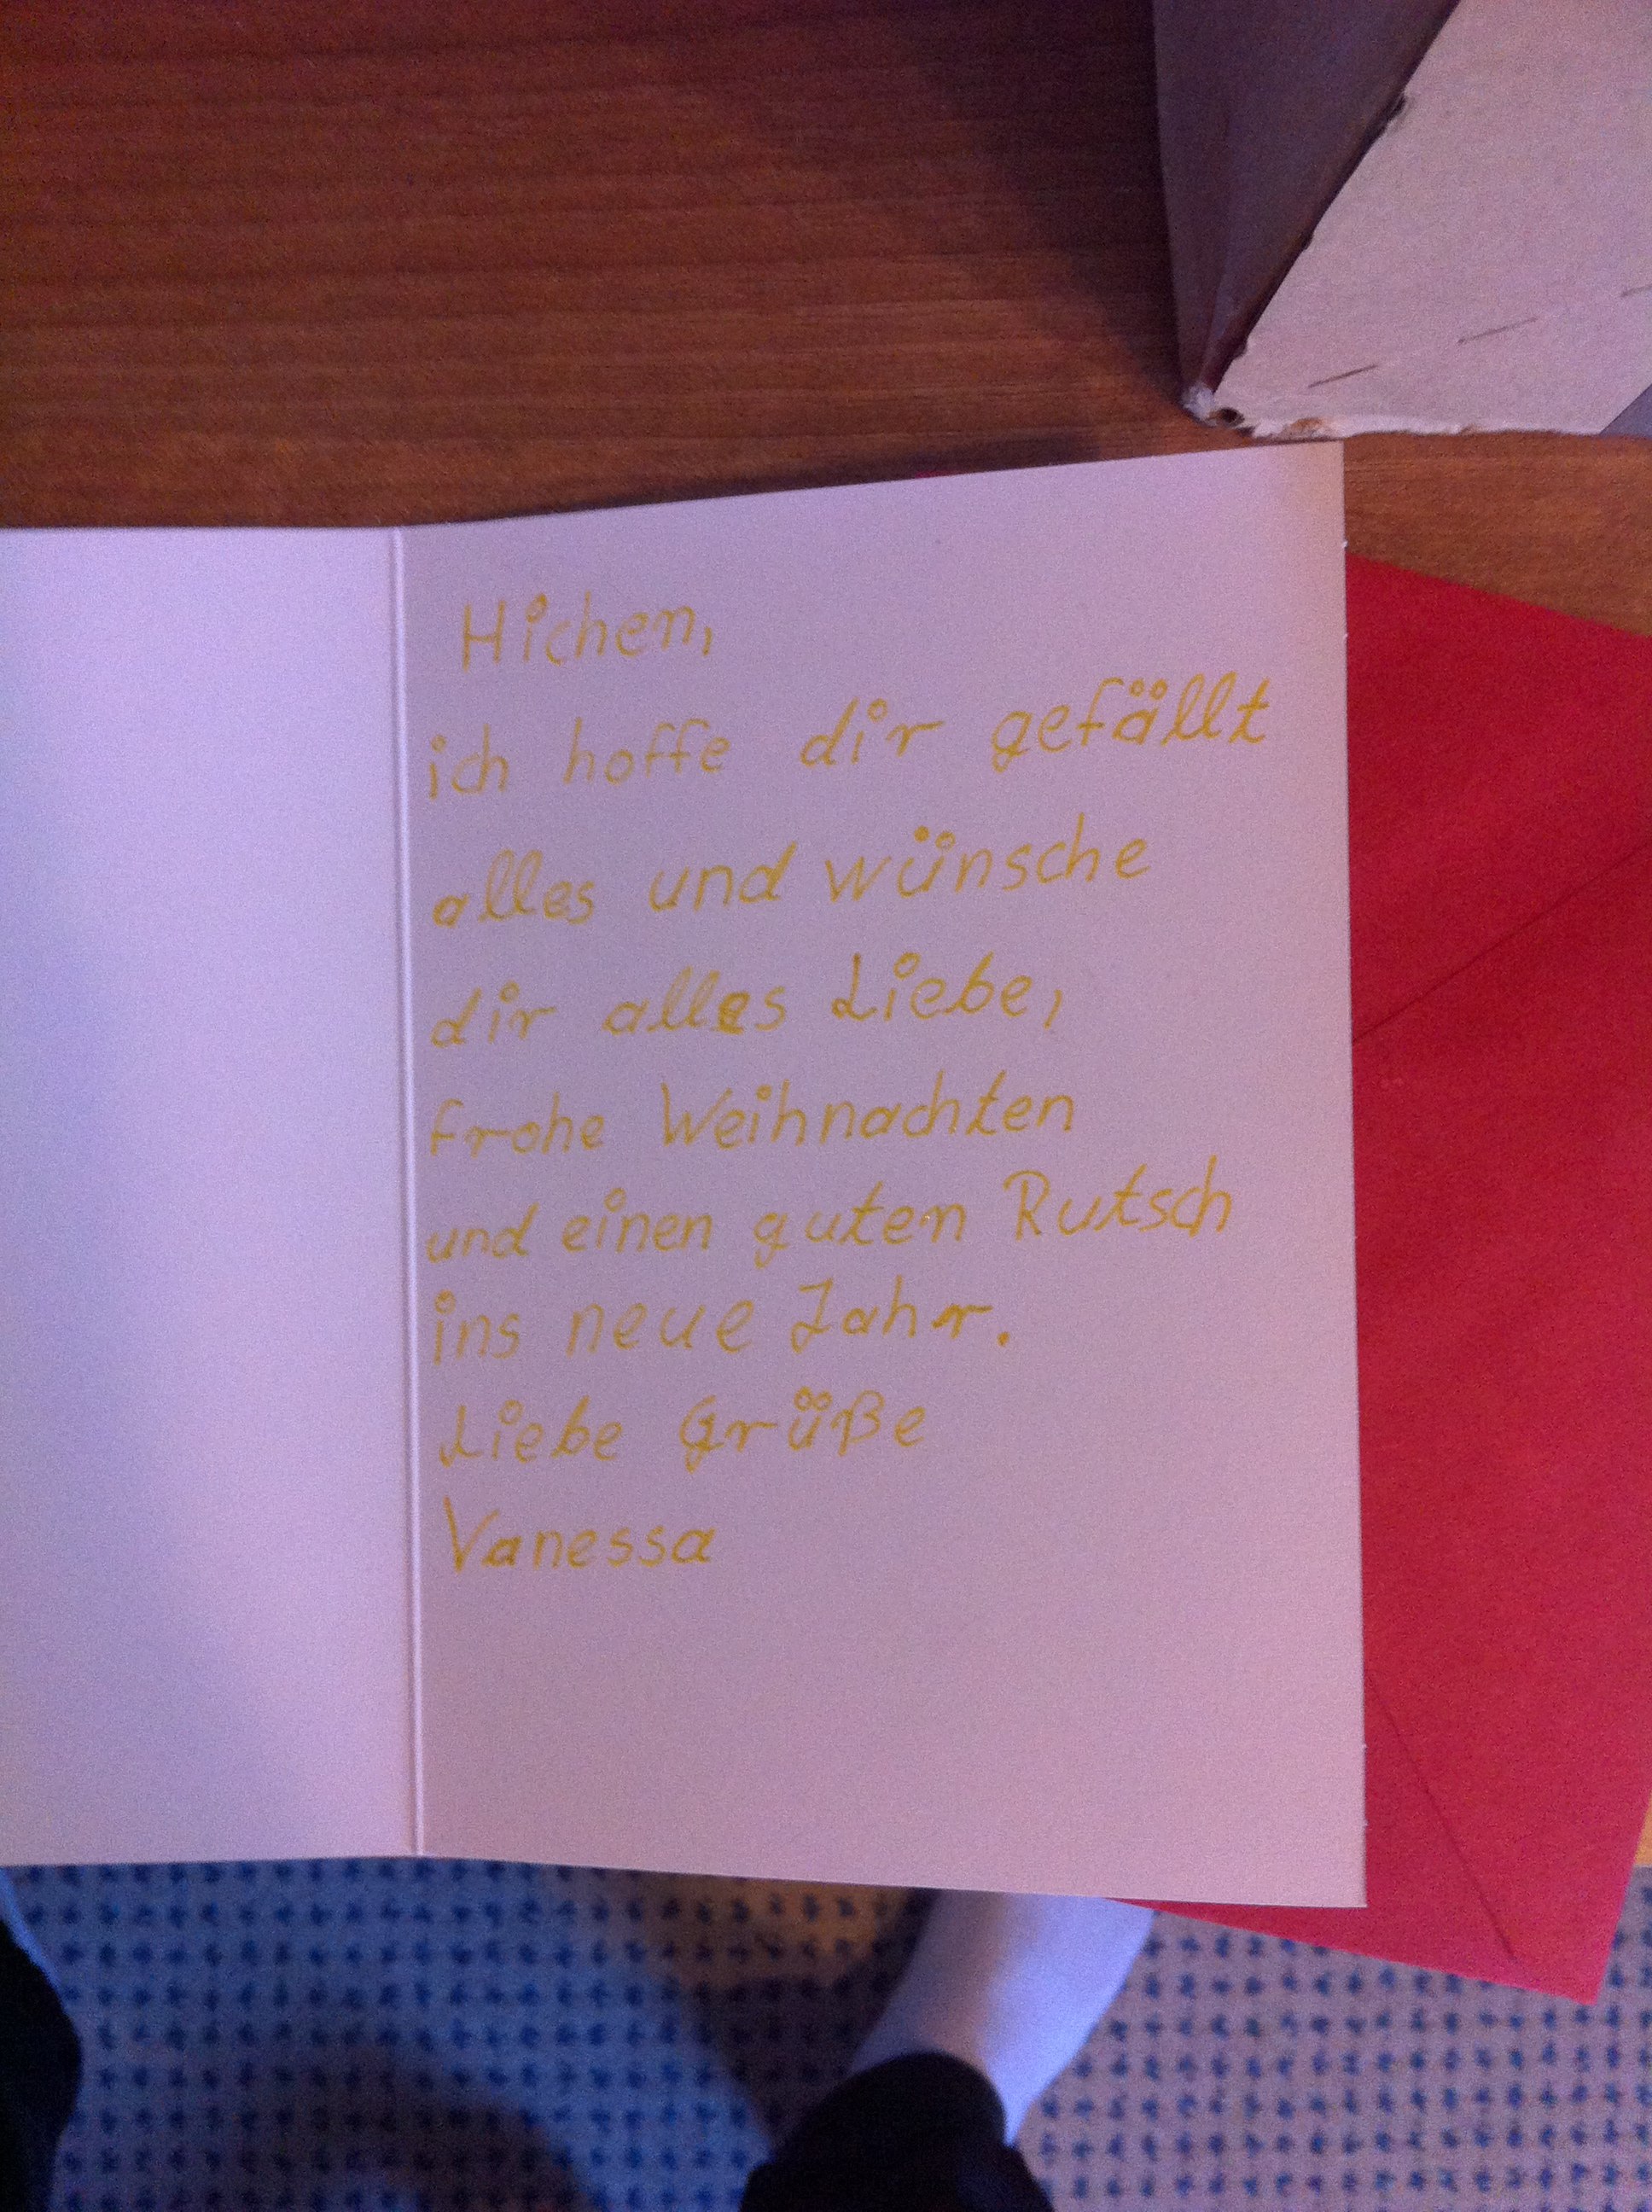 Hichen,
ich hoffe dir gefällt
alles und wünsche
dir alles Liebe,
frohe Weihnachten
und einen guten Rutsch
ins neue Jahr.
Liebe Grüße
Vanessa